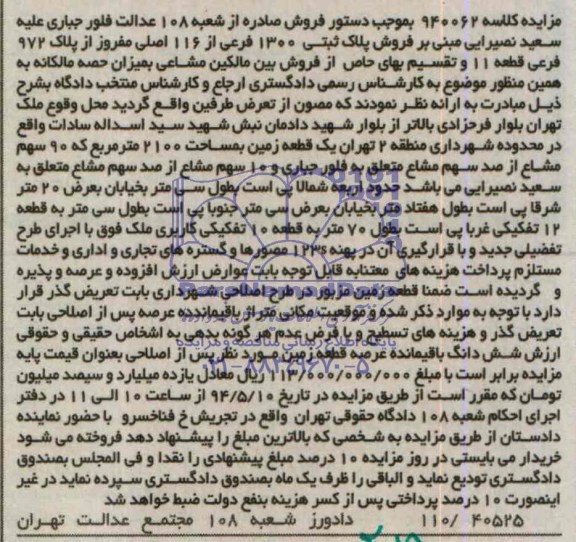 مزایده کلاسه ۹۴۰۰۶۲ بموجب دستور فروش صادره از شعبه ۱۰۸ عدالت فلور جباری علیه
سعید نصیرایی مبنی بر فروش پلاک ثبتی ۱۳۰۰ فرعی از ۱۱۶ اصلی مفروز از پلاک ۹۷۲
فرعی قطعه ۱۱ و تقسیم بهای حاص از فروش بین مالکین مشاعی بمیزان حصه مالکانه به
همین منظور موضوع به کارشناس رسمی دادگستری ارجاع و کارشناس منتخب دادگاه بشرح
ذیل مبادرت به ارائه نظر نمودند که مصون از تعرض طرفین واقع گردید محل وقوع ملک
تهران بلوار فرحزادی بالاتر از بلوار شهید دادمان نبش شهید سید اسداله سادات واقع
در محدوده شهرداری منطقه ۲ تهران یک قطعه زمین بمساحت ۲۱۰۰ مترمربع که ۹۰ سهم
مشاع از صد سهم مشاع متعلق به فلور جباری و ۱۰ سهم مشاع از صد سهم مشاع متعلق به
سعید نصیرایی می باشد حدود اربعه شمالا پی است بطول سی متر بخیابان بعرض ۲۰ متر
شرقا پی است بطول هفتاد متر بخیابان بعرض سی متر جنوبا پی است بطول سی متر به قطعه
۱۲ تفکیکی غربا پی است بطول ۷۰ متر به قطعه ۱۰ تفکیکی کاربری ملک فوق با اجرای طرح
تفضیلی جدید و با قرارگیری آن در پهنه مصورها و گستره های تجاری و اداری و خدمات
مستلزم پرداخت هزینه های معتنابه قابل توجه بابت عوارض ارزش افزوده و عرصه و پذیره
و گردیده است ضمنا قطعه زمین مزبور در طرح اصلاحی شهرداری بابت تعریض گذر قرار
دارد با توجه به موارد ذکر شده و موقعیت مکانی متراژ باقیمانندده عرصه پس از اصلاحی بابت
تعریض گذر و هزینه های تسطیح و با فرض عدم هر گونه بدهی به اشخاص حقیقی و حقوقی
ارزش شش دانگ باقیمانده عرصه قطعه زمین مورد نظر پس از اصلاحی بعنوان قیمت پایه
مزایده برابر است با مبلغ ۱۱۳/۰۰۰/۰۰۰/۰۰۰ ریال معادل یازده میلیارد و سیصد میلیون
تومان که مقرر است از طریق مزایده در تاریخ ۹۴/۵/۱۰ از ساعت ۱۰ الی ۱۱ در دفتر
اجرای احکام شعبه ۱۰۸ دادگاه حقوقی تهران واقع در تجریش خ فناخسرو با حضور نماینده
دادستان از طریق مزایده به شخصی که بالاترین مبلغ را پیشنهاد دهد فروخته می شود
خریدار می بایستی در روز مزایده ۱۰ درصد مبلغ پیشنهادی را نقدا و فی المجلس بصندوق
دادگستری تودیع نماید و الباقی را ظرف یک ماه بصندوق دادگستری سپرده نماید در غیر
اینصورت ۱۰ درصد پرداختی پس از کسر هزینه بنفع دولت ضبط خواهد شد
۱۱۰/ ۴۰۵۲۵ دادورز شعبه ۱۰۸ مجتمع عدالت تهران
پایگاه اطلاع رسانی مناقصه و مزایده
۰۲۱-۸۸۳۴۹۶۷۰-۵